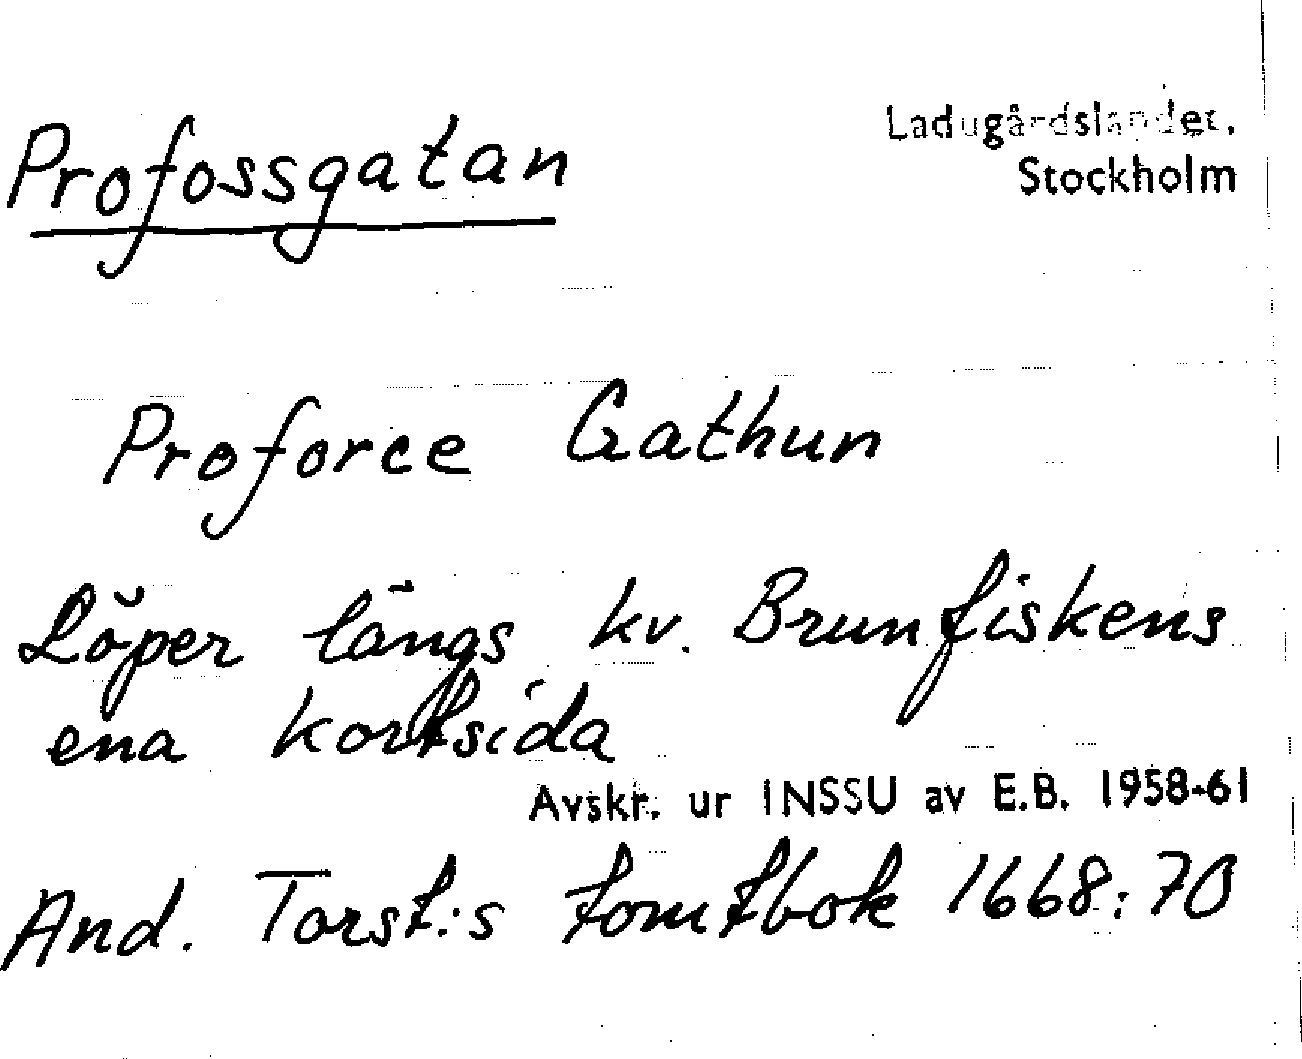 Profossgatan
Ladugårdslandet,
Stockholm
Proforce Gathun
Löper längs kv. Brunfiskens
ena kortsida
Avskr. ur INSSU av E.B. 1958-61
And. Torst:s tomtbok 1668:70